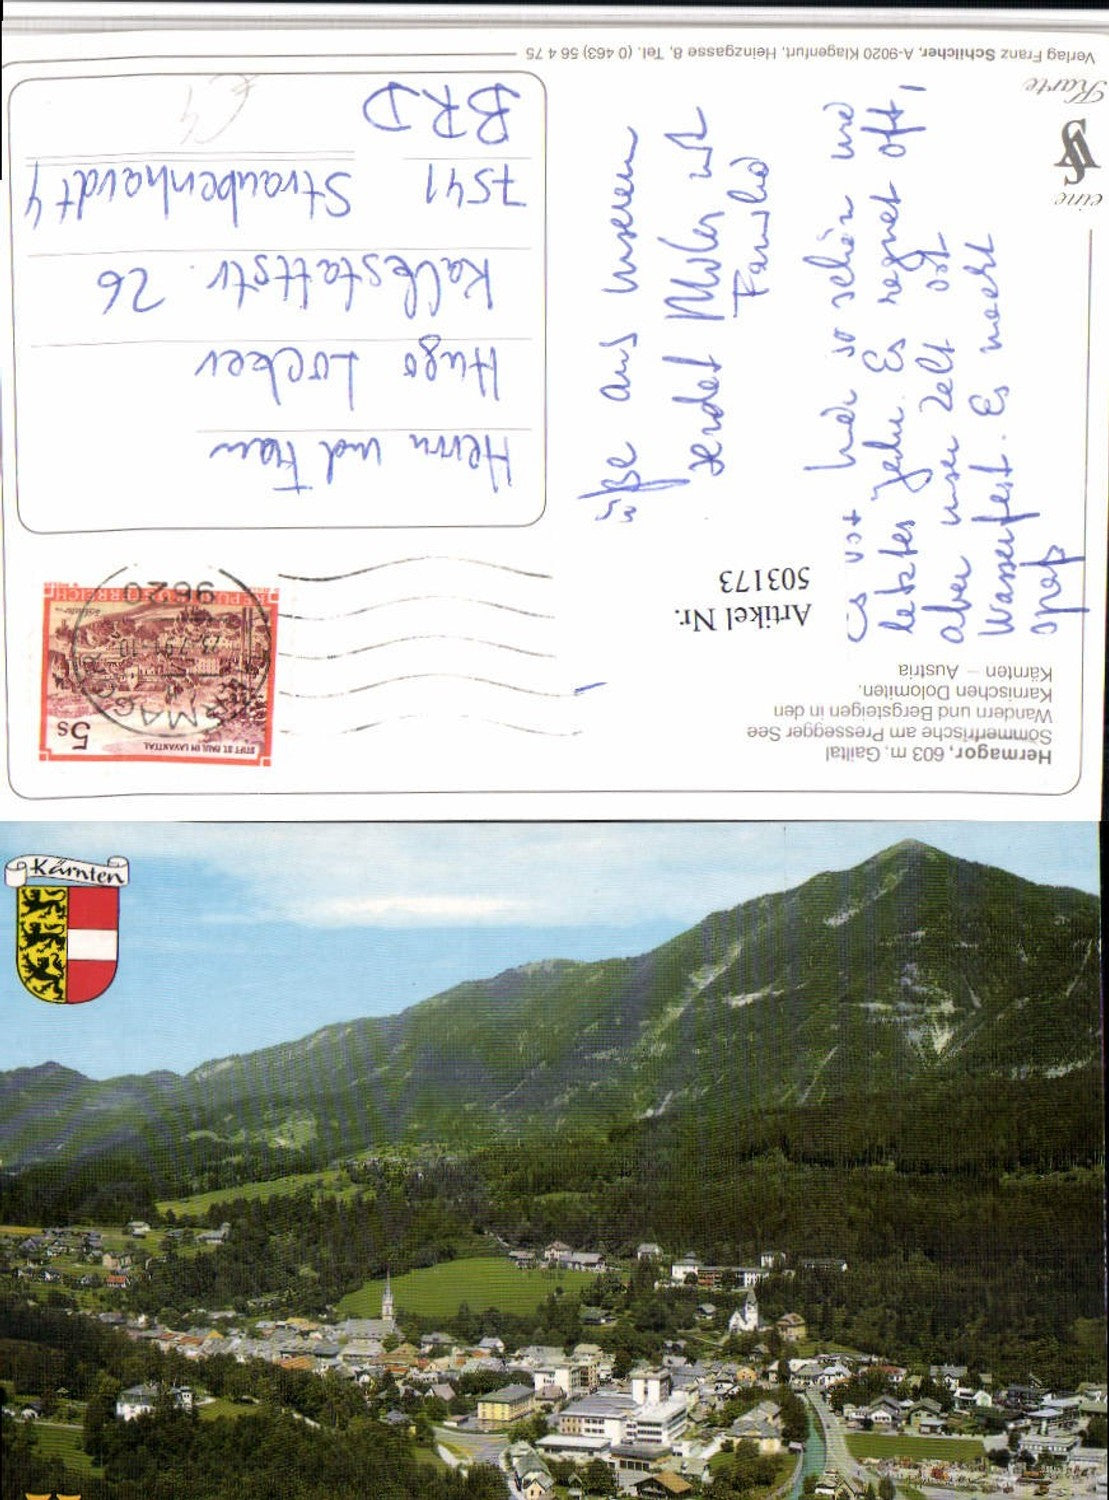 Hermagor, 603 m, Gailtal
Sommerfrische am Pressegger See
Wandern und Bergsteigen in den
Karnischen Dolomiten.
Kärnten – Austria
Artikel Nr.
503173
üße aus unserem
sendet Möler mit
Familie
Es ist hier so schön wie
letztes Jahr. Es regnet oft,
aber unser Zelt ist
Wasserfest. Es macht
spaß
STIFT ST. PAUL IM LAVANTTAL
5s
REPUBLIK ÖSTERREICH
9620
HERMAGOR
Herrn und Frau
Hugo Locker
Kalkstattstr. 26
7541 Straubenhardt 4
BRD
€4
eine
Karte
Verlag Franz Schilcher, A-9020 Klagenfurt, Heinzgasse 8, Tel. (0 463) 56 4 75
Kärnten